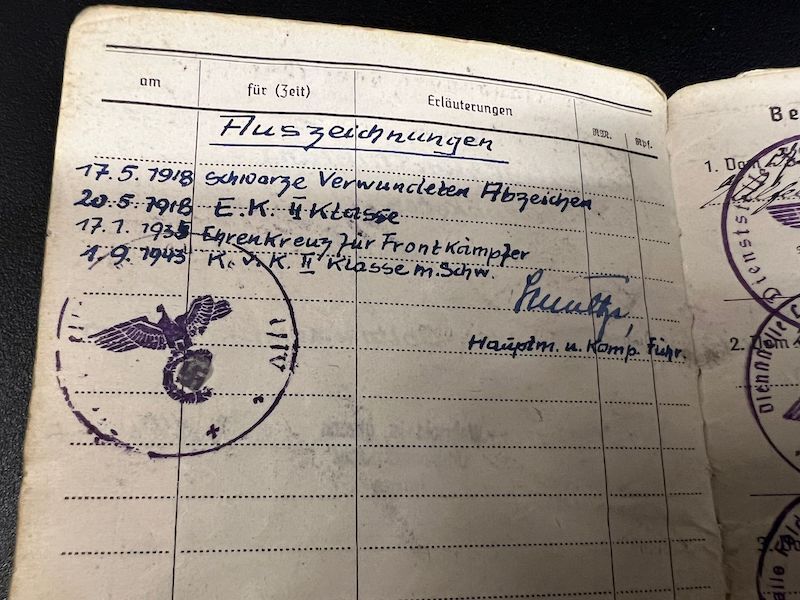 am für (Zeit) Erläuterungen RM. Rpf.
Auszeichnungen
17.5.1918 schwarze Verwundeten Abzeichen
20.5.1918 E.K. II Klasse
17.1.1935 Ehrenkreuz für Frontkämpfer
1.9.1943 K.V.K. II Klasse m. Schw.
Hauptm. u. Komp. Führ.
Be
1. Vom
Dienstst
2. Vom
Dienststelle